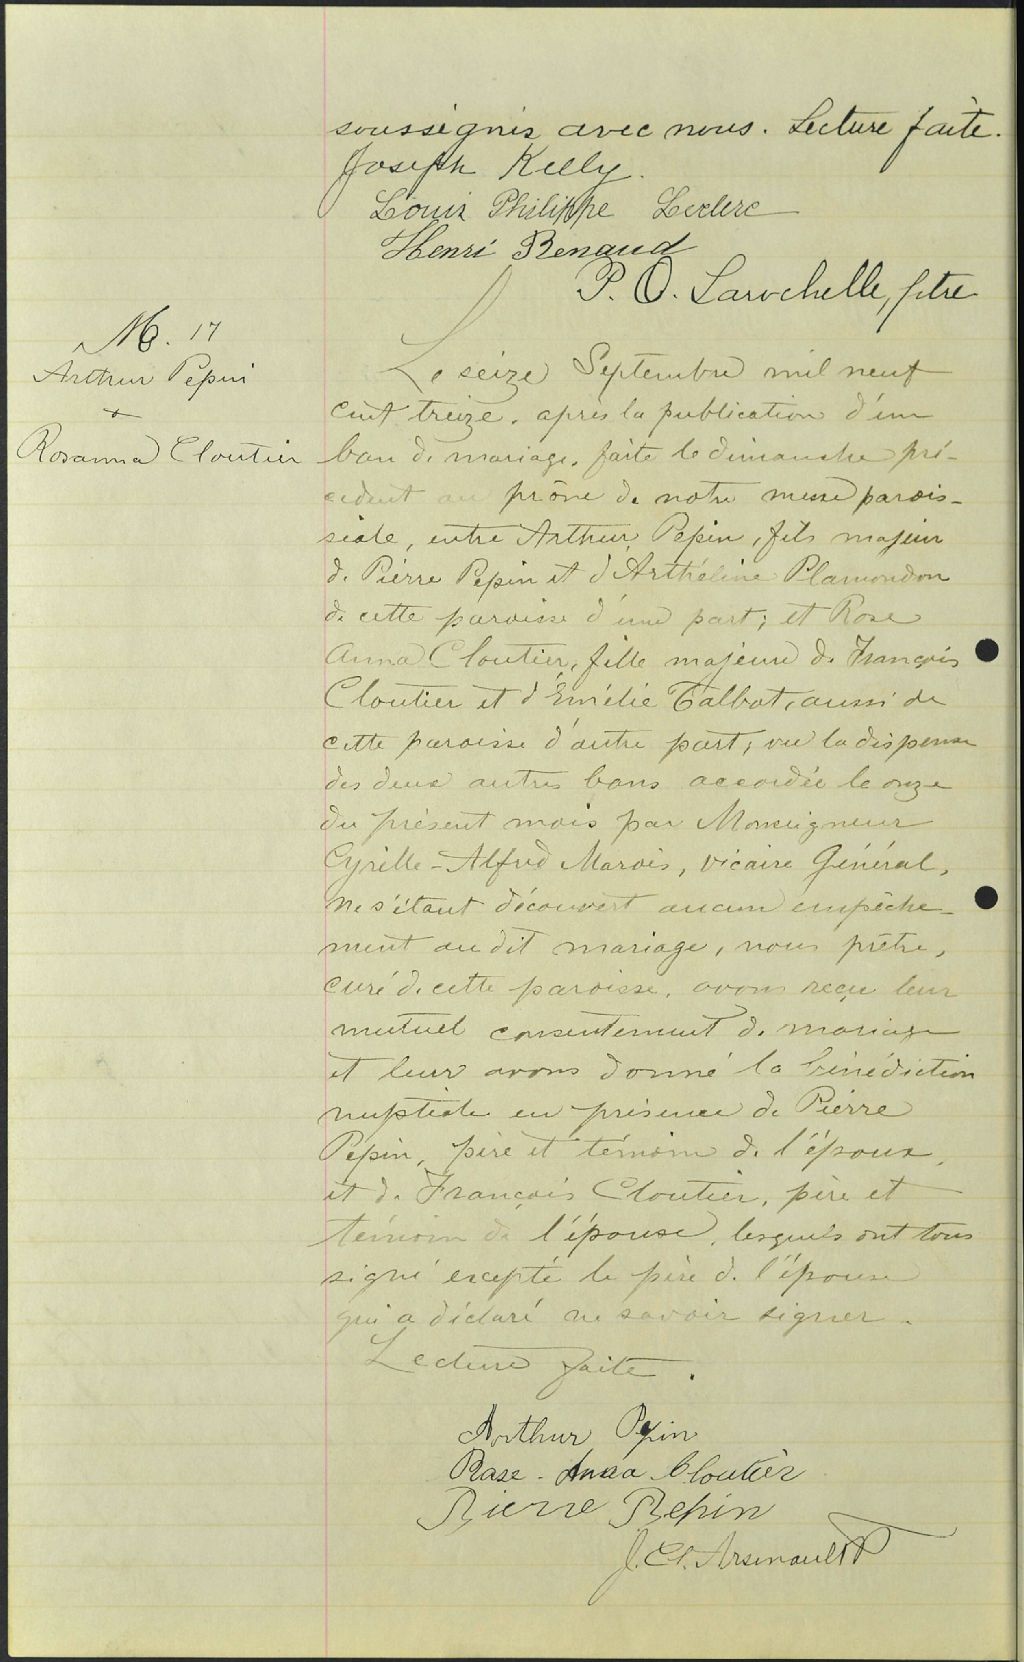 soussignés avec nous. Lecture faite.
Joseph Kelly.
Louis Philippe Leclerc
Henri Renaud
P. O. Larochelle, ptre
M. 17
Arthur Pepin
+
Rosanna Cloutier
Le seize Septembre mil neuf
cent treize, après la publication d'un
ban de mariage, faite le dimanche pré-
cédent au prône de notre messe parois-
siale, entre Arthur Pepin, fils majeur
de Pierre Pepin et d'Arthéline Plamondon
de cette paroisse d'une part; et Rose
Anna Cloutier, fille majeure de François
Cloutier et d'Émélie Talbot, aussi de
cette paroisse d'autre part; vu la dispense
des deux autres bans accordée le onze
du présent mois par Monseigneur
Cyrille-Alfred Marois, vicaire Général,
ne s'étant découvert aucun empêche-
ment au dit mariage, nous prêtre,
curé de cette paroisse, avons reçu leur
mutuel consentement de mariage
et leur avons donné la bénédiction
nuptiale en présence de Pierre
Pepin, père et témoin de l'époux,
et de François Cloutier, père et
témoin de l'épouse, lesquels ont tous
signé excepté le père de l'épouse
qui a déclaré ne savoir signer.
Lecture faite.
Arthur Pepin
Rose-Anna Cloutier
Pierre Pepin
J. El. Arsenault P